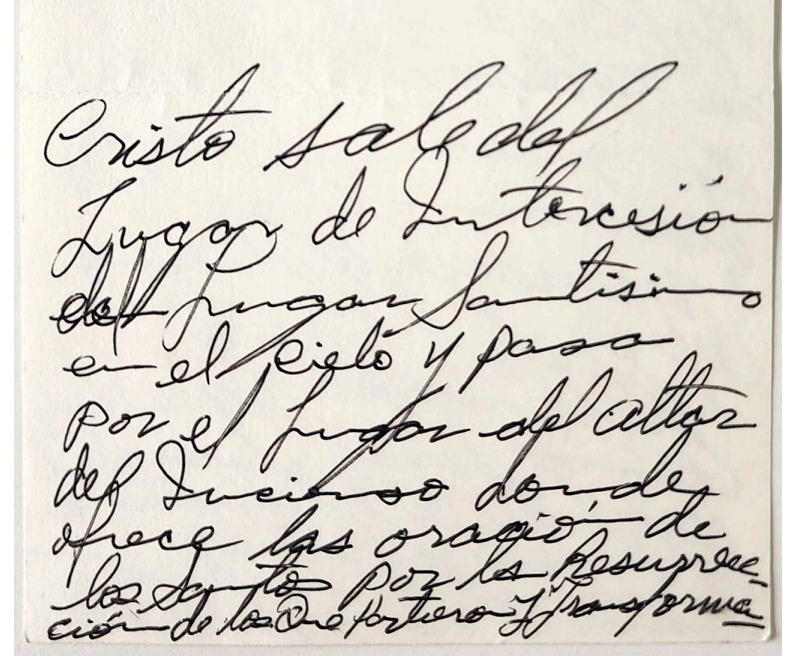 Cristo sale del
Lugar de Intercesión
del Lugar Santisimo
en el cielo y pasa
por el Lugar del altar
del Incienso donde
ofrece las oración de
los Santos por la Resurrec-
ción de los Que Partieron y Transforma-